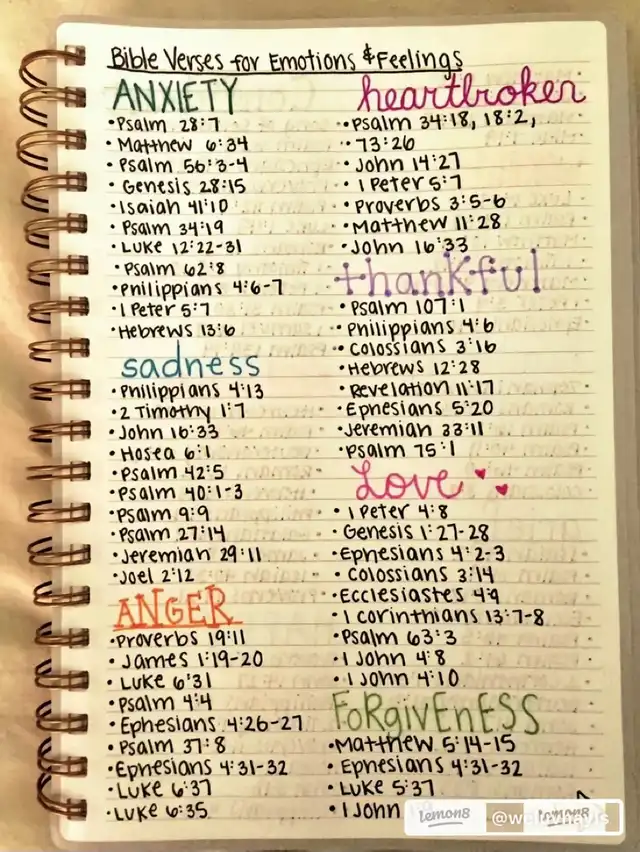 Bible Verses for Emotions & Feelings
ANXIETY
•Psalm 28:7
•Matthew 6:34
•Psalm 56:3-4
•Genesis 28:15
•Isaiah 41:10
•Psalm 34:19
•Luke 12:22-31
•Psalm 62:8
•Philippians 4:6-7
•1 Peter 5:7
•Hebrews 13:6
sadness
•Philippians 4:13
•2 Timothy 1:7
•John 16:33
•Hosea 6:1
•Psalm 42:5
•Psalm 40:1-3
•Psalm 9:9
•Psalm 27:14
•Jeremiah 29:11
•Joel 2:12
ANGER
•Proverbs 19:11
•James 1:19-20
•Luke 6:31
•Psalm 4:4
•Ephesians 4:26-27
•Psalm 37:8
•Ephesians 4:31-32
•Luke 6:37
•Luke 6:35
heartbroken
•Psalm 34:18, 18:2,
•73:26
•John 14:27
•1 Peter 5:7
•Proverbs 3:5-6
•Matthew 11:28
•John 16:33
thankful
•Psalm 107:1
•Philippians 4:6
•Colossians 3:16
•Hebrews 12:28
•Revelation 11:17
•Ephesians 5:20
•Jeremiah 33:11
•Psalm 75:1
Love
•1 Peter 4:8
•Genesis 1:27-28
•Ephesians 4:2-3
•Colossians 3:14
•Ecclesiastes 4:9
•1 Corinthians 13:7-8
•Psalm 63:3
•1 John 4:8
•1 John 4:10
FoRgivEnESS
•Matthew 5:14-15
•Ephesians 4:31-32
•Luke 5:37
•1 John
lemon8
lemon8